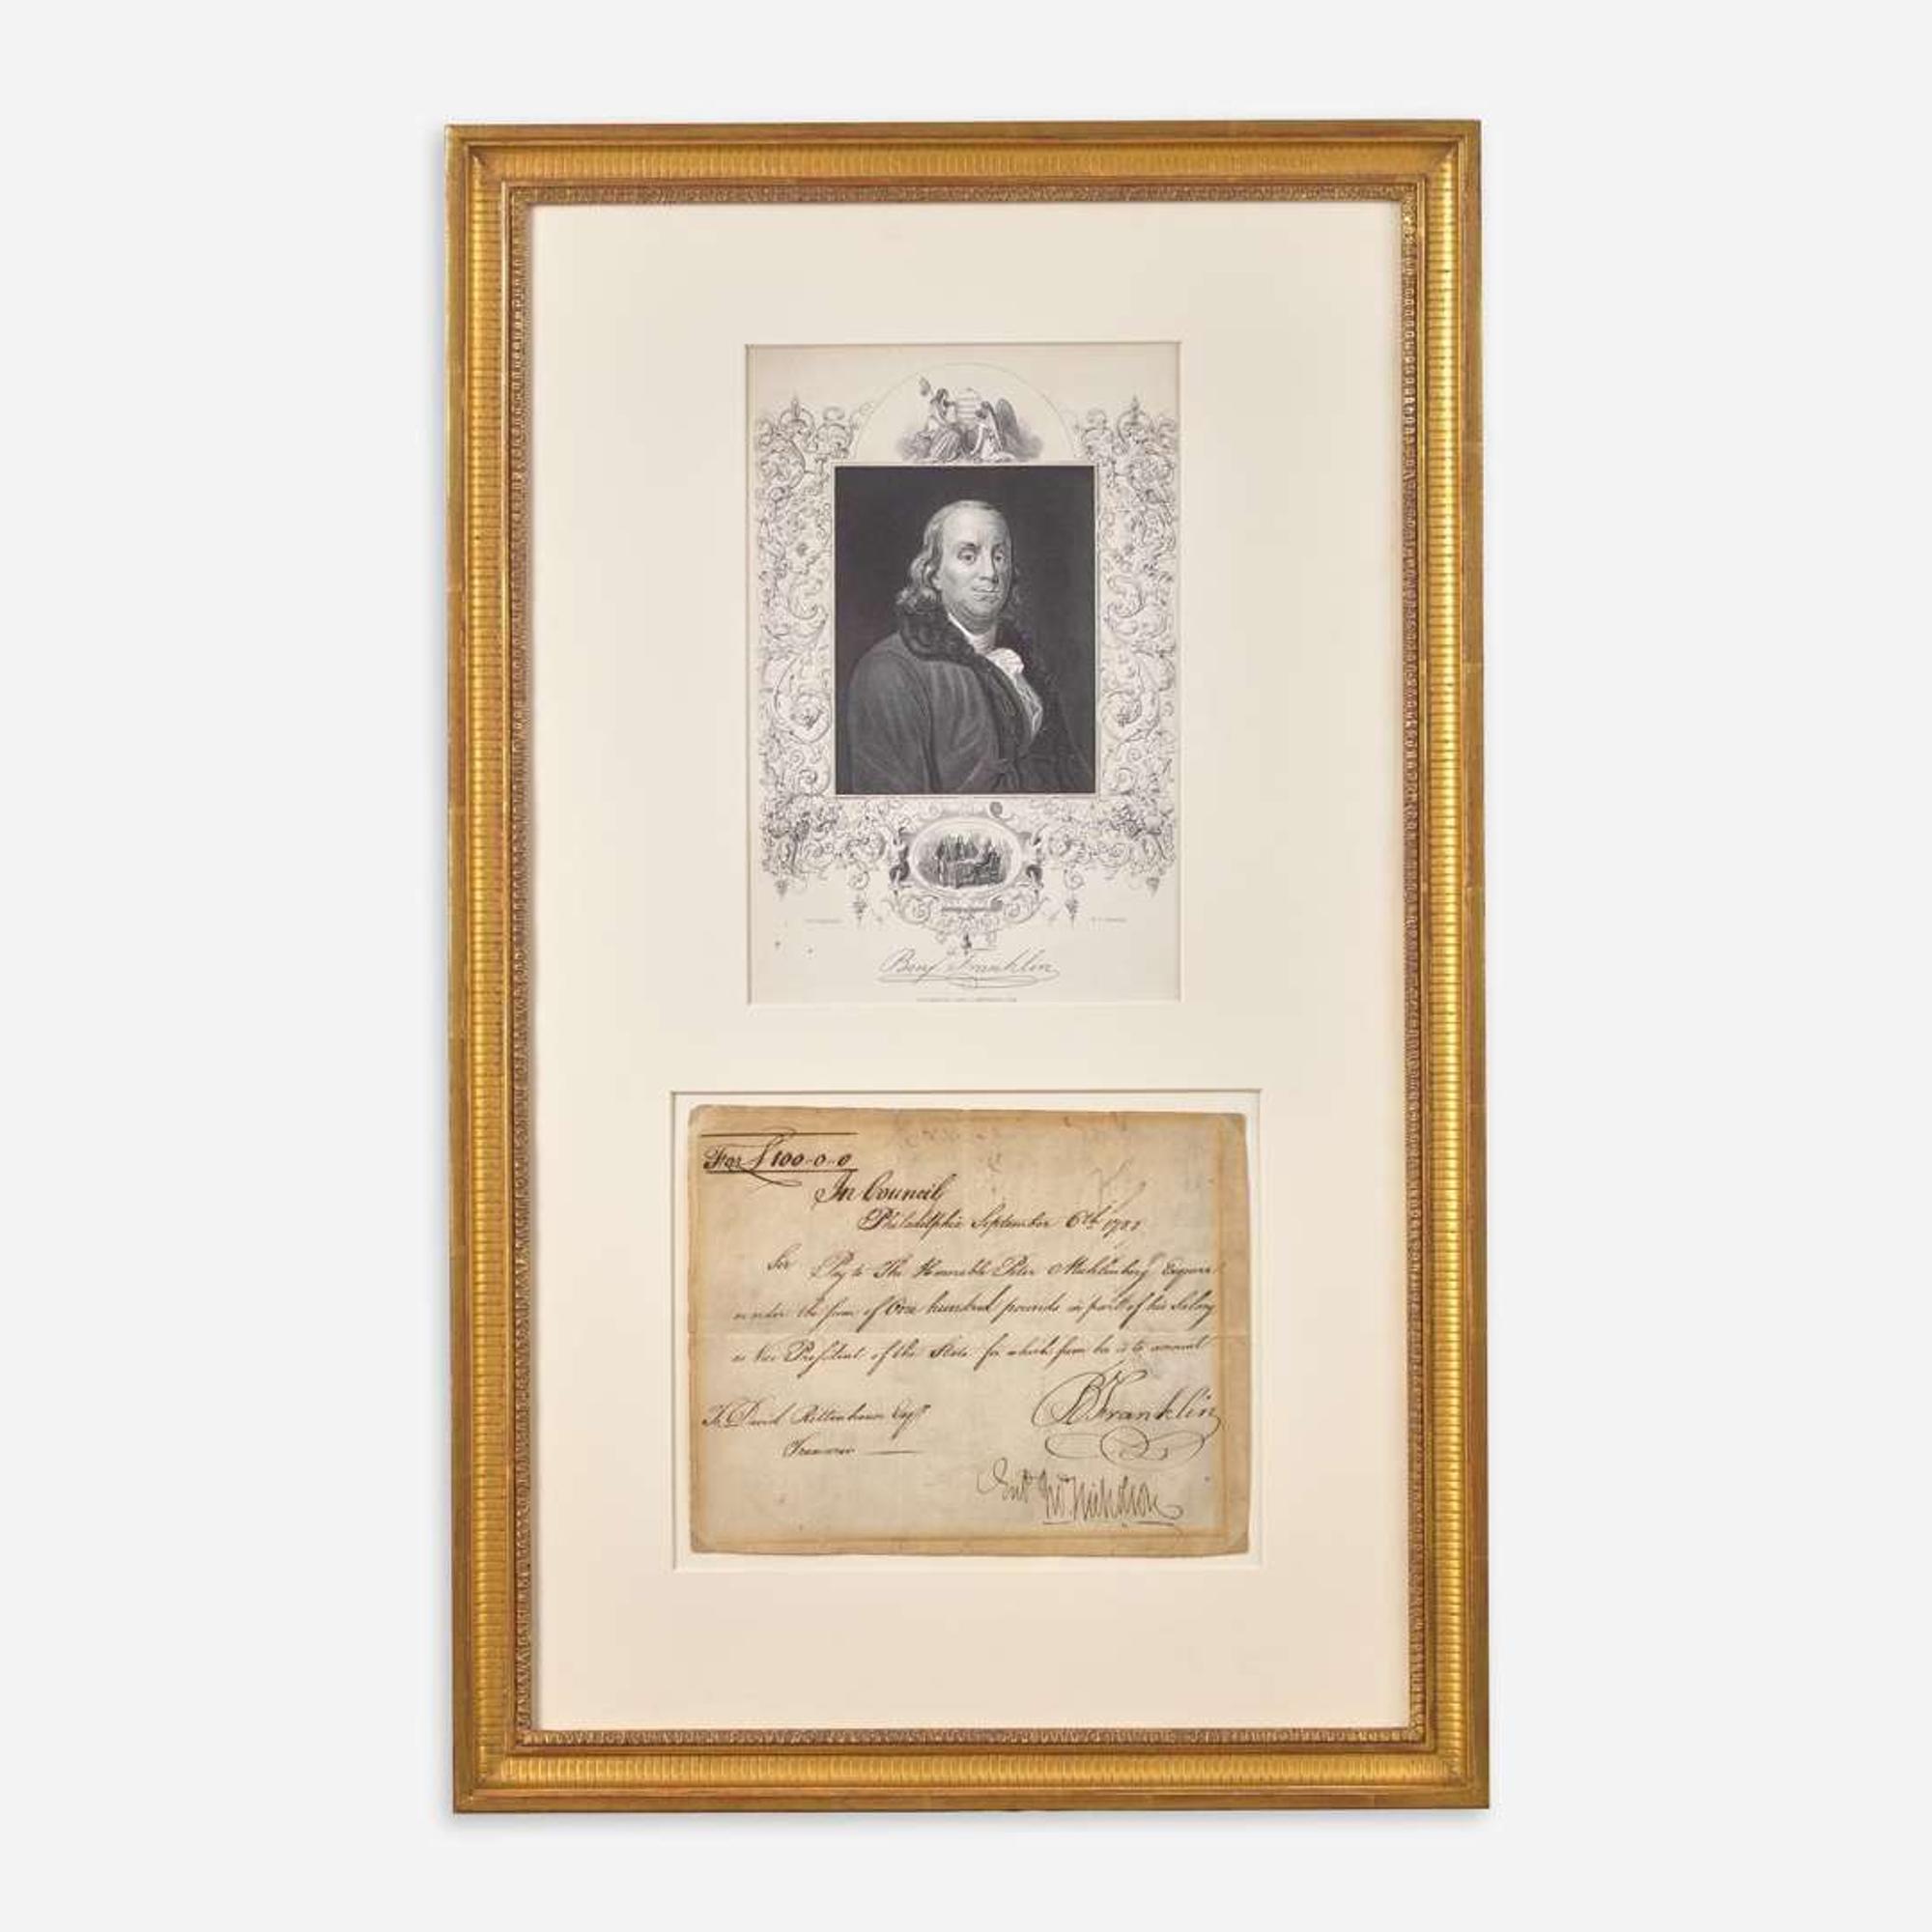 Benj Franklin
For £100-0-0
In Council
Philadelphia September 6th 1788
Sir Pay to The Honorable Peter Muhlenberg Esquire
or order the sum of One hundred pounds in part of his Salary
as Vice President of the State for which sum he is to account
B Franklin
To David Rittenhouse Esqr
Treasurer
Jno. Nicholson